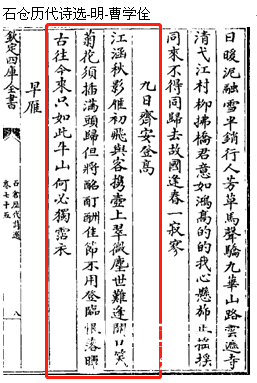 石仓历代诗选-明-曹学佺
日暖泥融雪半銷行人芳草馬聲驕九華山路雲遮寺
清弋江村柳拂橋君意如鴻高的的我心懸旆正摇摇
同來不得同歸去故國逢春一寂寥
九日齊安登高
江涵秋影雁初飛與客携壺上翠微塵世難逢開口笑
菊花須插滿頭歸但將酩酊酬佳節不用登臨恨落暉
古往今來只如此牛山何必獨霑衣
早雁
欽定四庫全書
石倉歷代詩選
卷七十五
八